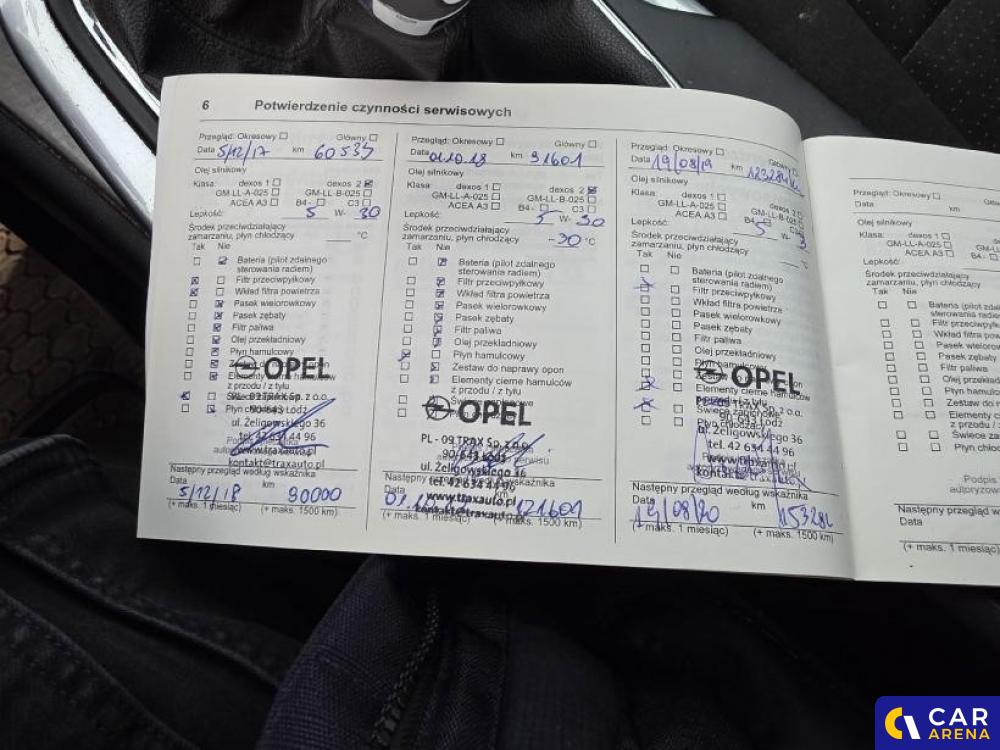 6 Potwierdzenie czynności serwisowych
Przegląd: Okresowy Główny
Data 5/12/17 km 60535
Olej silnikowy
Klasa: dexos 1 dexos 2
GM-LL-A-025 GM-LL-B-025
ACEA A3 B4 - C3
Lepkość: 5 W- 30
Środek przeciwdziałający
zamarzaniu, płyn chłodzący °C
Tak Nie
Bateria (pilot zdalnego
sterowania radiem)
Filtr przeciwpyłkowy
Wkład filtra powietrza
Pasek wielorowkowy
Pasek zębaty
Filtr paliwa
Olej przekładniowy
Płyn hamulcowy
OPEL
Elementy cierne hamulców
z przodu / z tyłu
PL - 09 TRAX Sp. z o.o.
90-643 Łódź
ul. Żeligowskiego 36
tel. 42 634 44 96
www.traxauto.pl
kontakt@traxauto.pl
Następny przegląd według wskaźnika
Data km
5/12/18 90000
(+ maks. 1 miesiąc) (+ maks. 1500 km)
Przegląd: Okresowy Główny
Data 01.10.18 km 91601
Olej silnikowy
Klasa: dexos 1 dexos 2
GM-LL-A-025 GM-LL-B-025
ACEA A3 B4 - C3
Lepkość: 5 W- 30
Środek przeciwdziałający
zamarzaniu, płyn chłodzący -30 °C
Tak Nie
Bateria (pilot zdalnego
sterowania radiem)
Filtr przeciwpyłkowy
Wkład filtra powietrza
Pasek wielorowkowy
Pasek zębaty
Filtr paliwa
Olej przekładniowy
Płyn hamulcowy
Zestaw do naprawy opon
Elementy cierne hamulców
z przodu / z tyłu
OPEL
PL - 09 TRAX Sp. z o.o.
90-643 Łódź
ul. Żeligowskiego 36
tel. 42 634 44 96
www.traxauto.pl
kontakt@traxauto.pl
Data km
121601
(+ maks. 1 miesiąc) (+ maks. 1500 km)
Przegląd: Okresowy Główny
Data 19/08/19 km 123284
Olej silnikowy
Klasa: dexos 1 dexos 2
GM-LL-A-025 GM-LL-B-025
ACEA A3 B4 -
Lepkość: 5 W- 3
Środek przeciwdziałający
zamarzaniu, płyn chłodzący °C
Tak Nie
Bateria (pilot zdalnego
sterowania radiem)
Filtr przeciwpyłkowy
Wkład filtra powietrza
Pasek wielorowkowy
Pasek zębaty
Filtr paliwa
Olej przekładniowy
Płyn hamulcowy
OPEL
Elementy cierne hamulców
Świece zapłonowe
Płyn chłodzący
ul. Żeligowskiego 36
tel. 42 634 44 96
www.traxauto.pl
kontakt@traxauto.pl
Następny przegląd według wskaźnika
Data km
19/08/20 153284
(+ maks. 1 miesiąc) (+ maks. 1500 km)
Przegląd: Okresowy
Data km
Olej silnikowy
Klasa: dexos 1
GM-LL-A-025
ACEA A3 B4 -
Lepkość:
Środek przeciwdziałający
zamarzaniu, płyn chłodzący
Tak Nie
Bateria (pilot
sterowania
Filtr przeciwpyłk
Wkład filtra
Pasek wielorow
Pasek zębaty
Filtr paliwa
Olej przekładni
Płyn hamulc
Zestaw do n
Elementy c
z przodu /
Świece za
Płyn chło
Podpis
autoryzow
Następny przegląd w
Data
(+ maks. 1 miesiąc)
CAR
ARENA